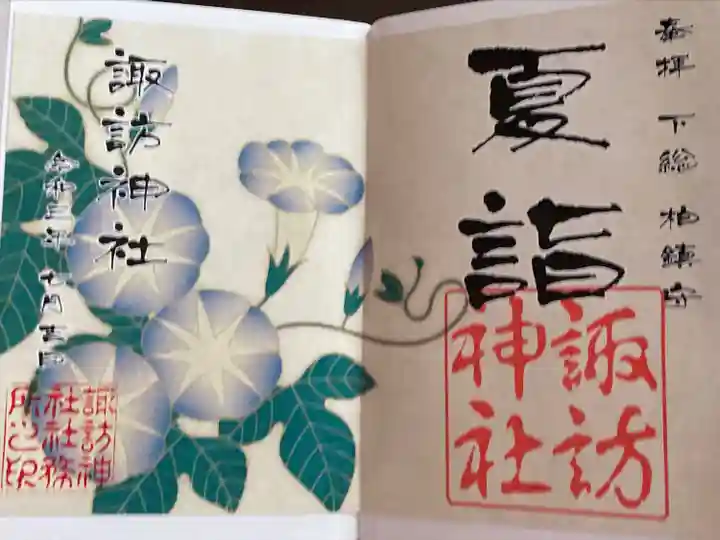 奉拝 下総 柏鎮守
夏詣
諏訪神社
諏訪神社
令和三年 七月吉日
諏訪神社社務所之印